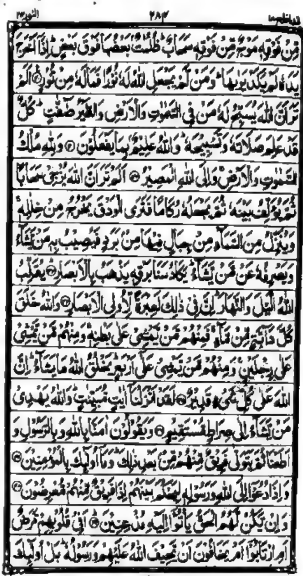 النور ٢٤
٢٨٤
مِّنْ فَوْقِهٖ مَوْجٌ مِّنْ فَوْقِهٖ سَحَابٌ ظُلُمٰتٌۢ بَعْضُهَا فَوْقَ بَعْضٍ اِذَاۤ اَخْرَجَ
يَدَهٗ لَمْ يَكَدْ يَرٰىهَا وَمَنْ لَّمْ يَجْعَلِ اللّٰهُ لَهٗ نُوْرًا فَمَا لَهٗ مِنْ نُّوْرٍ ۝ اَلَمْ
تَرَ اَنَّ اللّٰهَ يُسَبِّحُ لَهٗ مَنْ فِى السَّمٰوٰتِ وَالْاَرْضِ وَالطَّيْرُ صٰٓفّٰتٍ كُلٌّ
قَدْ عَلِمَ صَلَاتَهٗ وَتَسْبِيْحَهٗ وَاللّٰهُ عَلِيْمٌۢ بِمَا يَفْعَلُوْنَ ۝ وَلِلّٰهِ مُلْكُ
السَّمٰوٰتِ وَالْاَرْضِ وَاِلَى اللّٰهِ الْمَصِيْرُ ۝ اَلَمْ تَرَ اَنَّ اللّٰهَ يُزْجِىْ سَحَابًا
ثُمَّ يُؤَلِّفُ بَيْنَهٗ ثُمَّ يَجْعَلُهٗ رُكَامًا فَتَرَى الْوَدْقَ يَخْرُجُ مِنْ خِلٰلِهٖ
وَيُنَزِّلُ مِنَ السَّمَآءِ مِنْ جِبَالٍ فِيْهَا مِنْۢ بَرَدٍ فَيُصِيْبُ بِهٖ مَنْ يَّشَآءُ
وَيَصْرِفُهٗ عَنْ مَّنْ يَّشَآءُ يَكَادُ سَنَا بَرْقِهٖ يَذْهَبُ بِالْاَبْصَارِ ۝ يُقَلِّبُ
اللّٰهُ الَّيْلَ وَالنَّهَارَ اِنَّ فِىْ ذٰلِكَ لَعِبْرَةً لِّاُولِى الْاَبْصَارِ ۝ وَاللّٰهُ خَلَقَ
كُلَّ دَآبَّةٍ مِّنْ مَّآءٍ فَمِنْهُمْ مَّنْ يَّمْشِىْ عَلٰى بَطْنِهٖ وَمِنْهُمْ مَّنْ يَّمْشِىْ
عَلٰى رِجْلَيْنِ وَمِنْهُمْ مَّنْ يَّمْشِىْ عَلٰٓى اَرْبَعٍ يَخْلُقُ اللّٰهُ مَا يَشَآءُ اِنَّ
اللّٰهَ عَلٰى كُلِّ شَىْءٍ قَدِيْرٌ ۝ لَقَدْ اَنْزَلْنَاۤ اٰيٰتٍ مُّبَيِّنٰتٍ وَاللّٰهُ يَهْدِىْ
مَنْ يَّشَآءُ اِلٰى صِرَاطٍ مُّسْتَقِيْمٍ ۝ وَيَقُوْلُوْنَ اٰمَنَّا بِاللّٰهِ وَبِالرَّسُوْلِ وَ
اَطَعْنَا ثُمَّ يَتَوَلّٰى فَرِيْقٌ مِّنْهُمْ مِّنْۢ بَعْدِ ذٰلِكَ وَمَاۤ اُولٰٓئِكَ بِالْمُؤْمِنِيْنَ ۝
وَاِذَا دُعُوْۤا اِلَى اللّٰهِ وَرَسُوْلِهٖ لِيَحْكُمَ بَيْنَهُمْ اِذَا فَرِيْقٌ مِّنْهُمْ مُّعْرِضُوْنَ ۝
وَاِنْ يَّكُنْ لَّهُمُ الْحَقُّ يَاْتُوْۤا اِلَيْهِ مُذْعِنِيْنَ ۝ اَفِىْ قُلُوْبِهِمْ مَّرَضٌ
اَمِ ارْتَابُوْۤا اَمْ يَخَافُوْنَ اَنْ يَّحِيْفَ اللّٰهُ عَلَيْهِمْ وَرَسُوْلُهٗ بَلْ اُولٰٓئِكَ